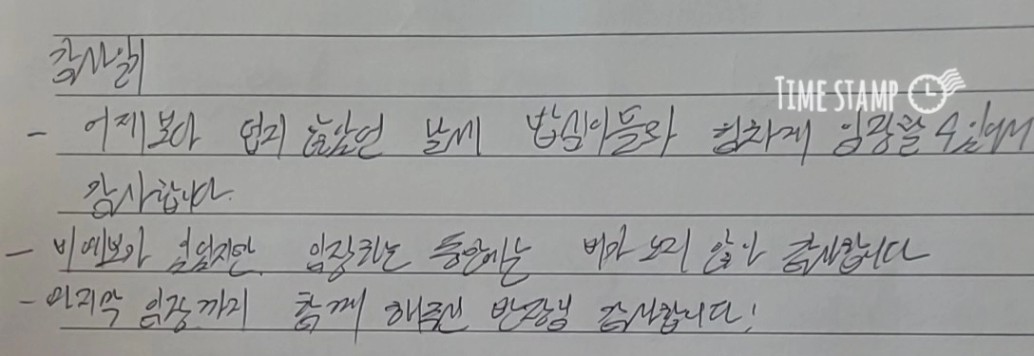 감사일기
TIME STAMP
- 어제보다 덥지 않았던 날씨 밥심이들과 힘차게 임장할 수 있어서
감사합니다.
- 비예보가 있었지만 임장하는 동안에는 비가 오지 않아 감사합니다
- 마지막 임장까지 함께 해주신 반장님 감사합니다!